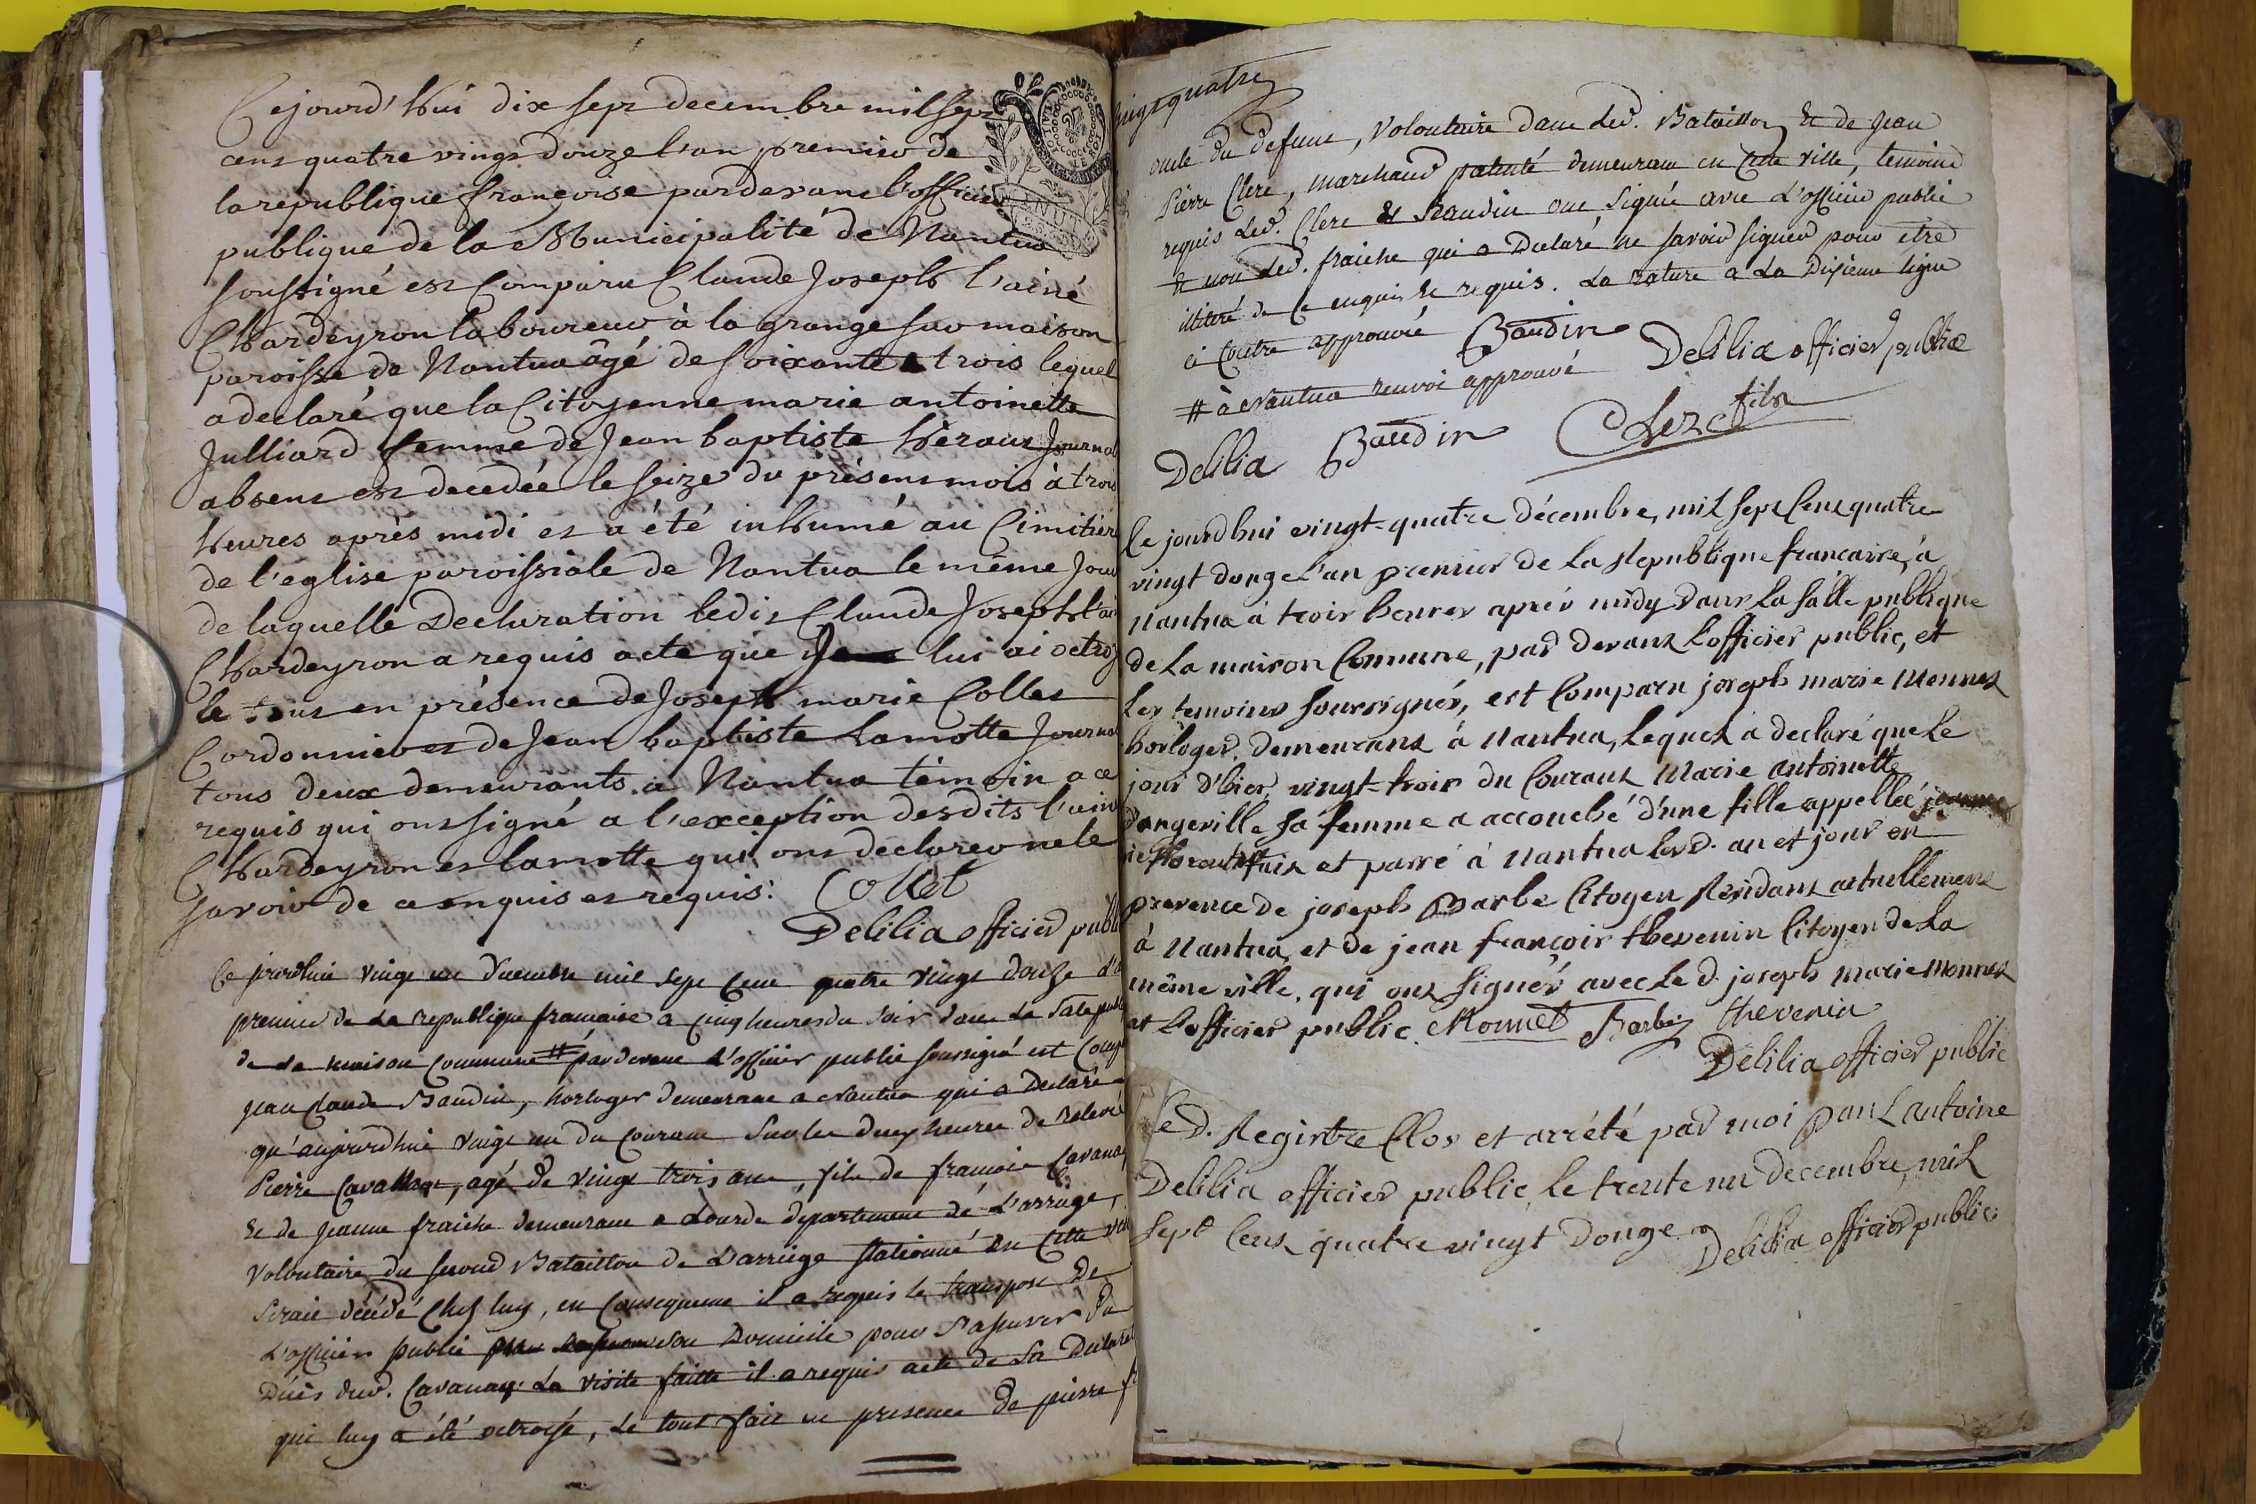 Cejourd'Hui dix sept decembre mil sept
cens quatre vingt douze l'an premier de
la republique françoise pardevant l'officier
publique de la Municipalité de Nantua
soussigné est Comparu Claude Joseph l'ainé
Chardeyron laboureur à la grange sur maison
paroisse de Nantua âgé de soixante trois lequel
a declaré que la Citoyenne marie antoinette
Julliard femme de Jean baptiste Héraux Journal
absent est decedée le seize du présent mois à trois
heures après midi et a été inhumé au Cimitier
de l'eglise paroissiale de Nantua le même Jour
de laquelle Declaration ledit Claude Joseph l'ai
Chardeyron a requis acte que lui ai octroy
le tout en présence de Joseph marie Collet
Cordonnier et de Jean baptiste Lamotte Journal
tous deux demeurants a Nantua témoin a ce
requis qui ont signé a l'exception desdits l'ainé
Chardeyron et lamotte qui ont declarer ne le
savoir de ce enquis et requis. Collet
Delilia officier publi
Ce jourdhui vingt un decembre mil sept cent quatre vingt douze l'a
premier de la republique francaise a cinq heures du soir dans la Sale publi
de la maison commune # pardevant L'officier public soussigné est comp
jean claude Baudin, horloger demeurant a Nantua qui a declaré
qu'aujourdhui vingt un du courant sur les heures de relevé
Pierre Cavanay, agé de vingt trois ans, fils de francois Cavanay
& de jeanne fraiche demeurant a departement de L'arriege,
volontaire du second Bataillon de L'arriege stationné en cette vill
serait décédé chez luy, en consequence il a requis le transport de
L'officier public son domicile pour s'assurer du
Décès dud. Cavanay. La visite faitte il a requis acte de sa Declarat
qui luy a été octroyé, le tout fait en presence de pierre f
vingt quatre
oncle du defunt, volontaire dans led. Bataillon & de jean
Pierre Clerc, marchand patenté demeurant en cette ville, temoins
requis led. Clerc & Baudin ont signé avec L'officier public
& non led. fraiche qui a declaré ne savoir signer pour etre
illiteré de ce enquis & requis. La rature a La dixieme ligne
ci contre approuvé Baudin Delilia officier public
# à Nantua renvoi approuvé
Delilia Baudin Clerc fils
Ce jourd'hui vingt-quatre décembre, mil sept Cent quatre
vingt douze L'an premier de La Republique francaise, à
Nantua à trois heures après midy dans La salle publique
de La maison Commune, par devant L'officier public, et
Les temoins soussignés, est Comparu joseph marie Monnet
horloger, demeurant à Nantua, Lequel a declaré que Le
jour d'hier, vingt-trois du Courant Marie antoinette
Dangeville sa femme a accouché d'une fille appellée
fait et passé à Nantua Lesd. an et jour en
presence de joseph Barbe Citoyen Residant actuellement
à Nantua, et de jean françois thevenin Citoyen de La
même ville, qui ont signés avec Le d. joseph marie Monnet
et L'officier public. Monnet Barbe thevenin
Delilia officier public
Le d. Registre Clos et arrété par moi Paul antoine
Delilia officier public, Le trente un decembre, mil
sept Cent quatre vingt Douze
Delilia officier public